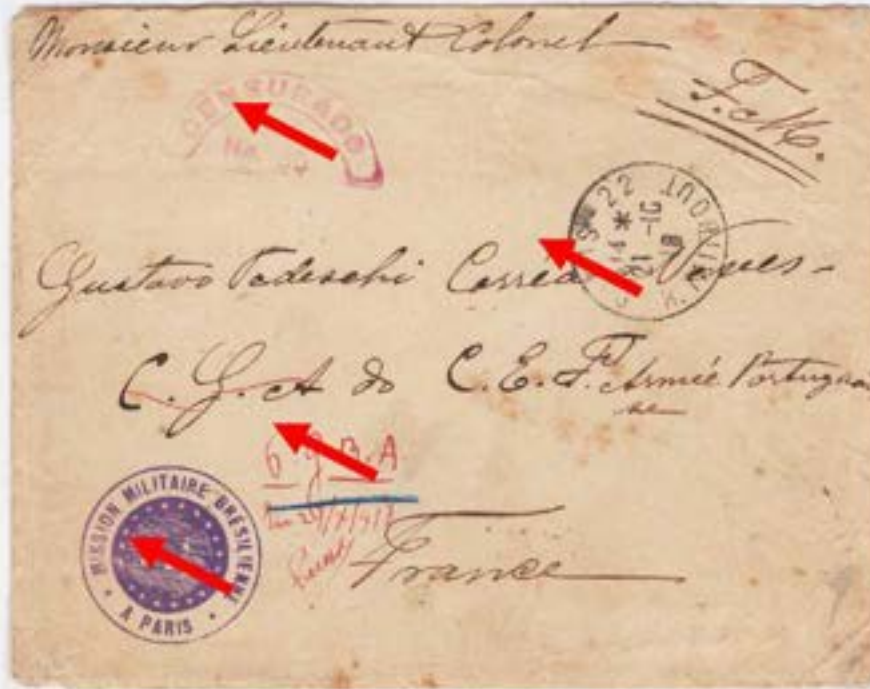 Monsieur Lieutenant Colonel
F.M.
CENSURADO
22
Gustavo Tedeschi Correa Neves-
C. G. A do C. E. P. Armée Portugai
se
6 G. B. A.
MISSION MILITAIRE BRÉSILIENNE
A PARIS
France